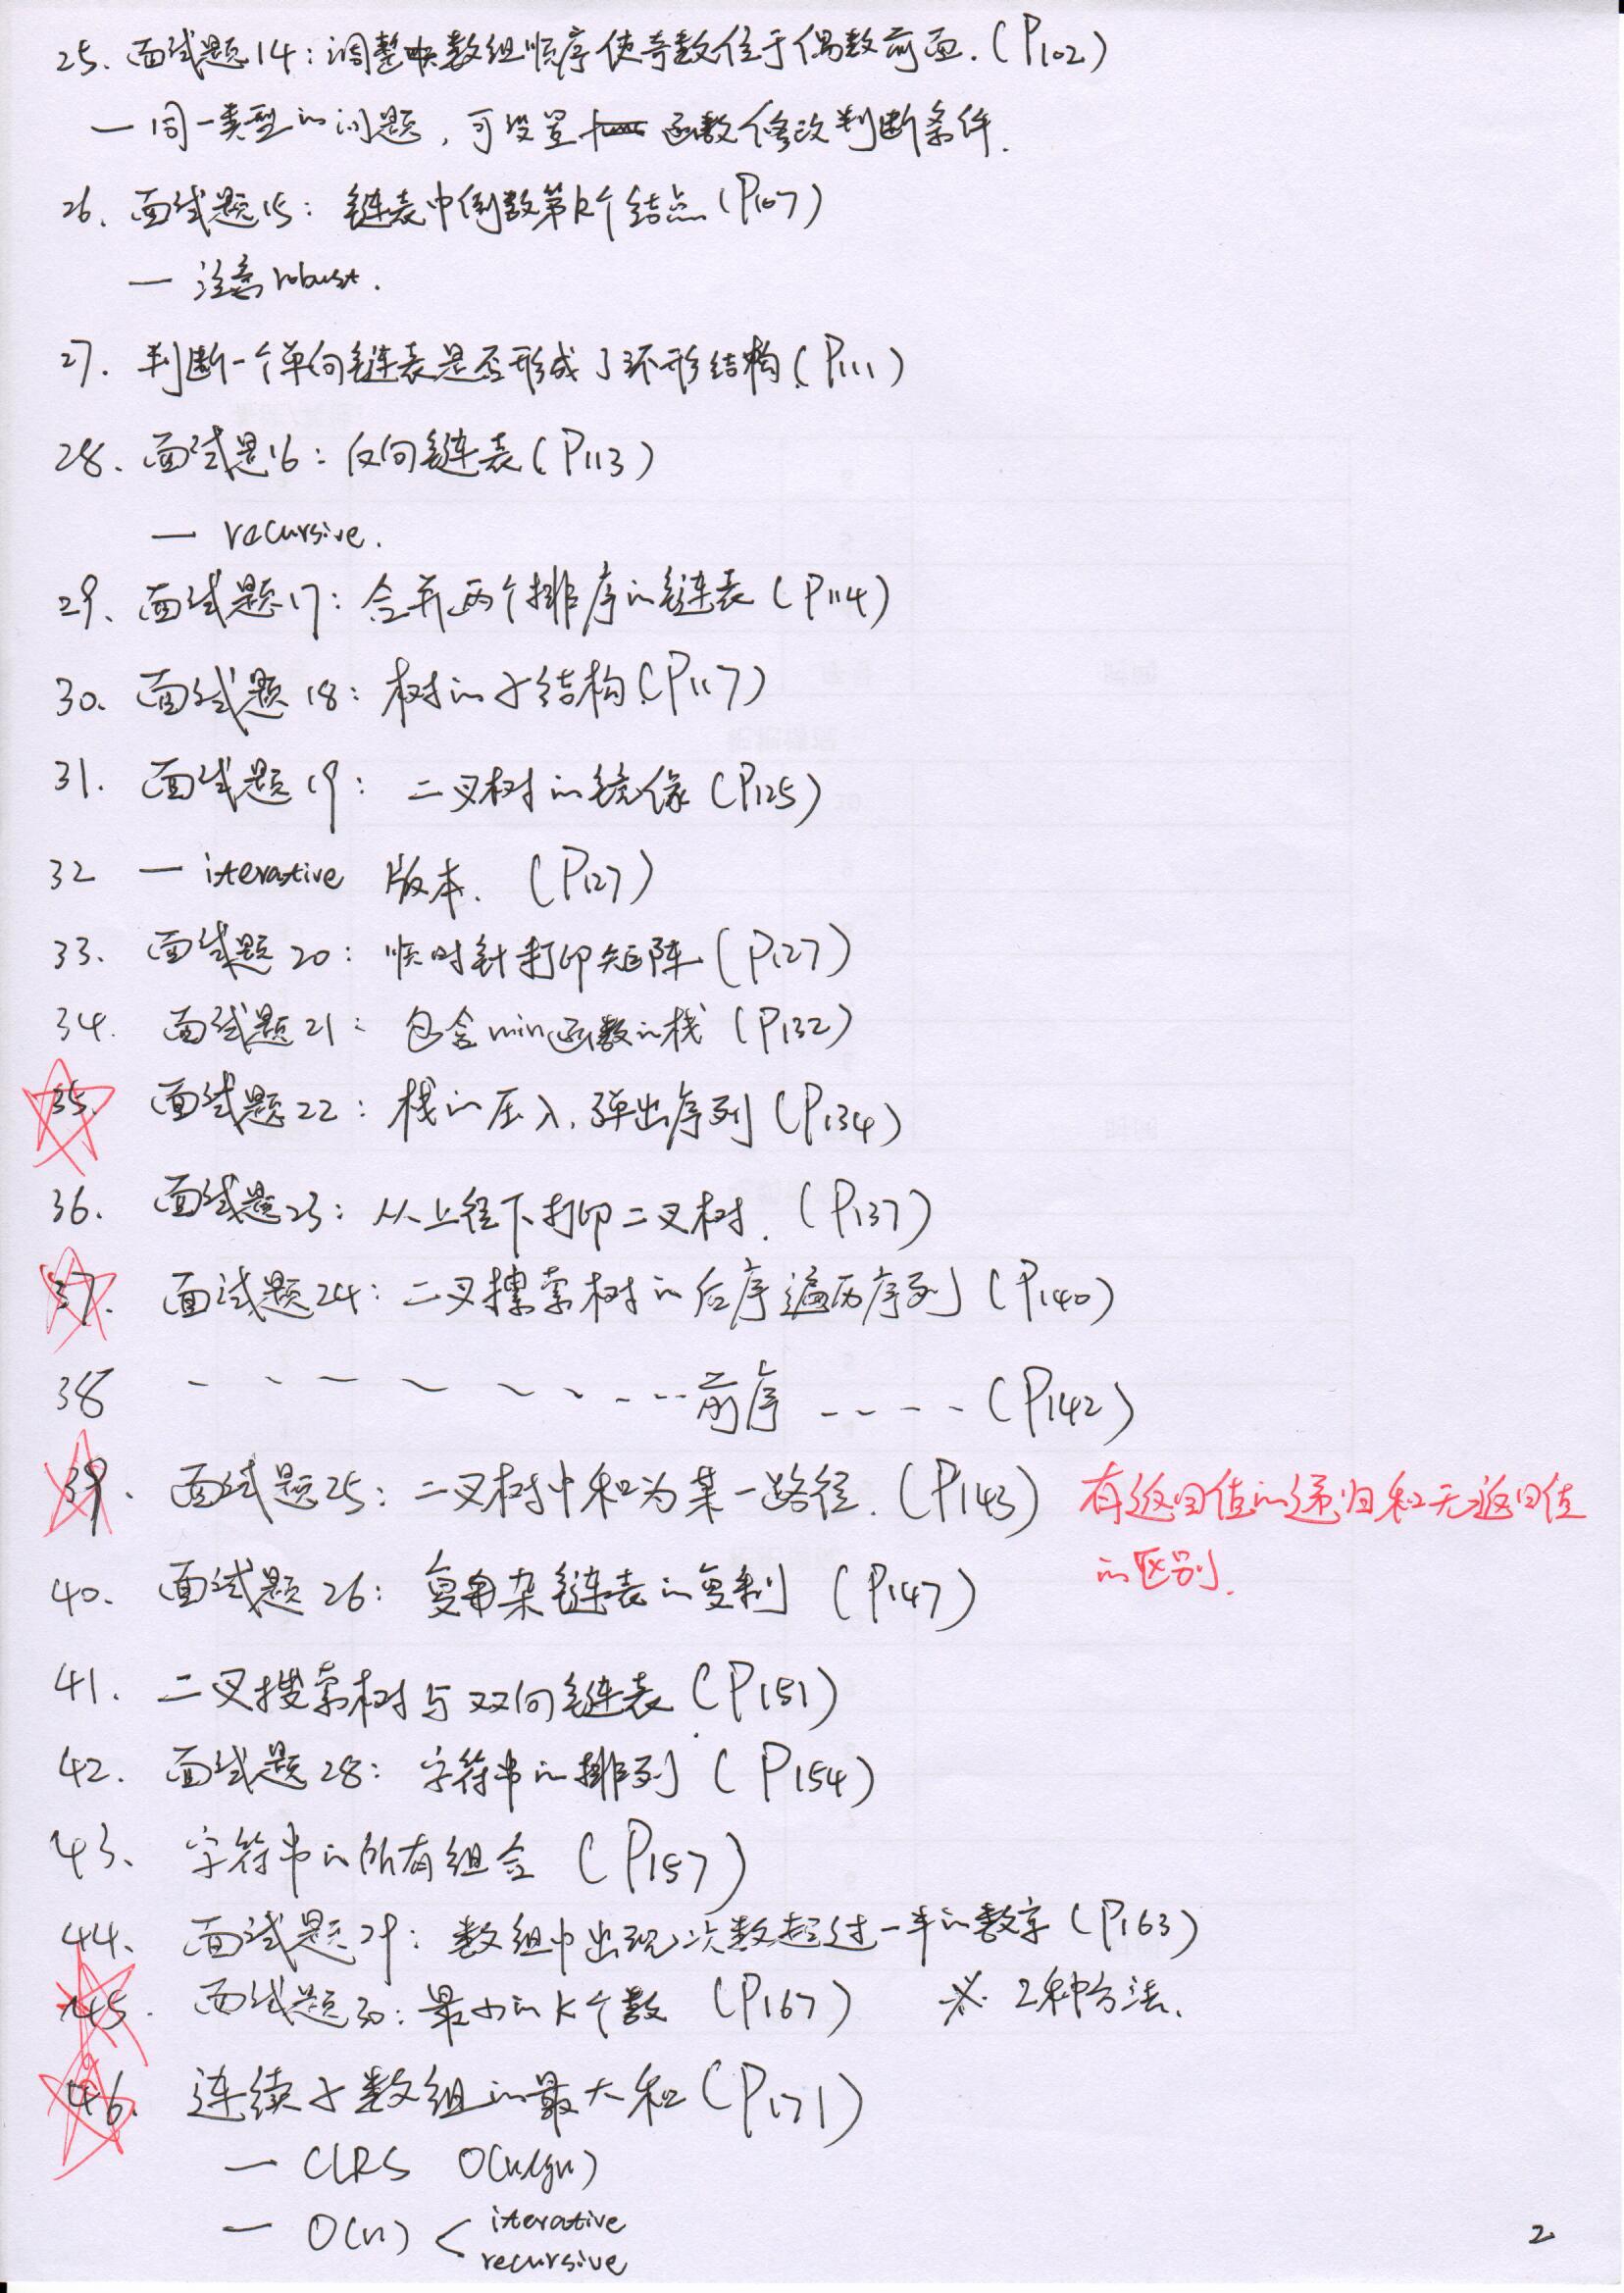 25. 面试题14：调整数组顺序使奇数位于偶数前面.(P102)
— 同一类型的问题，可设置 函数修改判断条件.
26. 面试题15：链表中倒数第k个结点(P107)
— 注意robust.
27. 判断一个单向链表是否形成了环形结构(P111)
28. 面试题16：反向链表(P113)
— recursive.
29. 面试题17：合并两个排序的链表(P114)
30. 面试题18：树的子结构(P117)
31. 面试题19：二叉树的镜像(P125)
32 — iterative 版本. (P127)
33. 面试题20：顺时针打印矩阵(P127)
34. 面试题21：包含min函数的栈(P132)
35. 面试题22：栈的压入、弹出序列(P134)
36. 面试题23：从上往下打印二叉树.(P137)
37. 面试题24：二叉搜索树的后序遍历序列(P140)
38 - - - - - - - - - 前序 - - - - (P142)
39. 面试题25：二叉树中和为某一路径.(P143) 有返回值的递归和无返回值
的区别.
40. 面试题26：复杂链表的复制 (P147)
41. 二叉搜索树与双向链表(P151)
42. 面试题28：字符串的排列 (P154)
43. 字符串的所有组合 (P157)
44. 面试题29：数组中出现次数超过一半的数字(P163)
45. 面试题30：最小的k个数 (P167) ※ 2种方法.
46. 连续子数组的最大和(P171)
— CLRS O(nlgn)
— O(n) < iterative
recursive
2